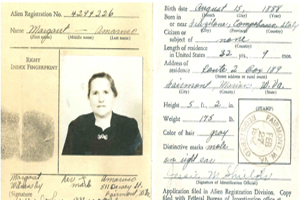 Alien Registration No. 4299226
Name Margaret Amarneo
(First name) (Middle name) (Last name)
RIGHT
INDEX FINGERPRINT
Margaret her Amarneo
mark
(Signature)
Birth date August 15, 1888
Born in
or near
Citizen or
subject of none
Length of residence
in United States 32 yrs.,
Address of
residence Route 2 Box 189
Fairmont Marion W.Va.
Height 5 ft., 2 in.
Weight 175 lb.
Color of hair gray
Distinctive marks mole
on right ear
(Signature of Identification Official)
Application filed in Alien Registration Division. Copy
filed with Federal Bureau of Investigation office at
FAIRMONT W.VA.
FEB
27